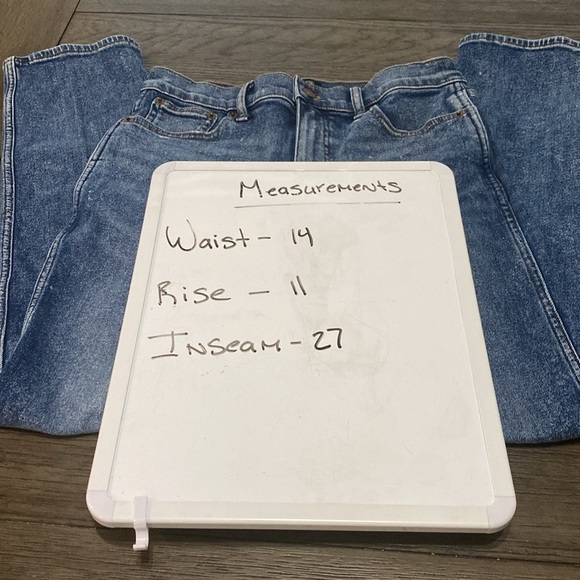 Measurements
Waist - 14
Rise - 11
Inseam - 27